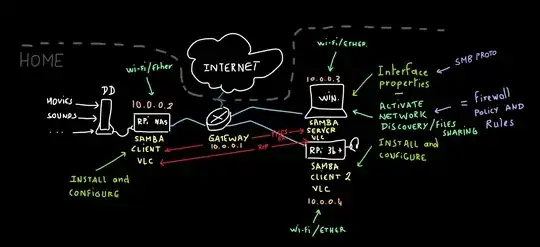 HOME
Wi-Fi/Ether
INTERNET
Wi-Fi/ETHER.
SMB PROTO
MOVIES
SOUNDS
...
DD
10.0.0.2
RPi NAS
SAMBA
CLIENT
VLC
INSTALL and
CONFIGURE
GATEWAY
10.0.0.1
10.0.0.3
WIN.
SAMBA
SERVER
VLC
RPi 3b+
SAMBA
CLIENT 2
VLC
10.0.0.4
Wi-Fi/ETHER
Interface
properties
ACTIVATE
NETWORK
DISCOVERY/FILES
SHARING
= Firewall
POLICY AND
RULES
INSTALL and
CONFIGURE